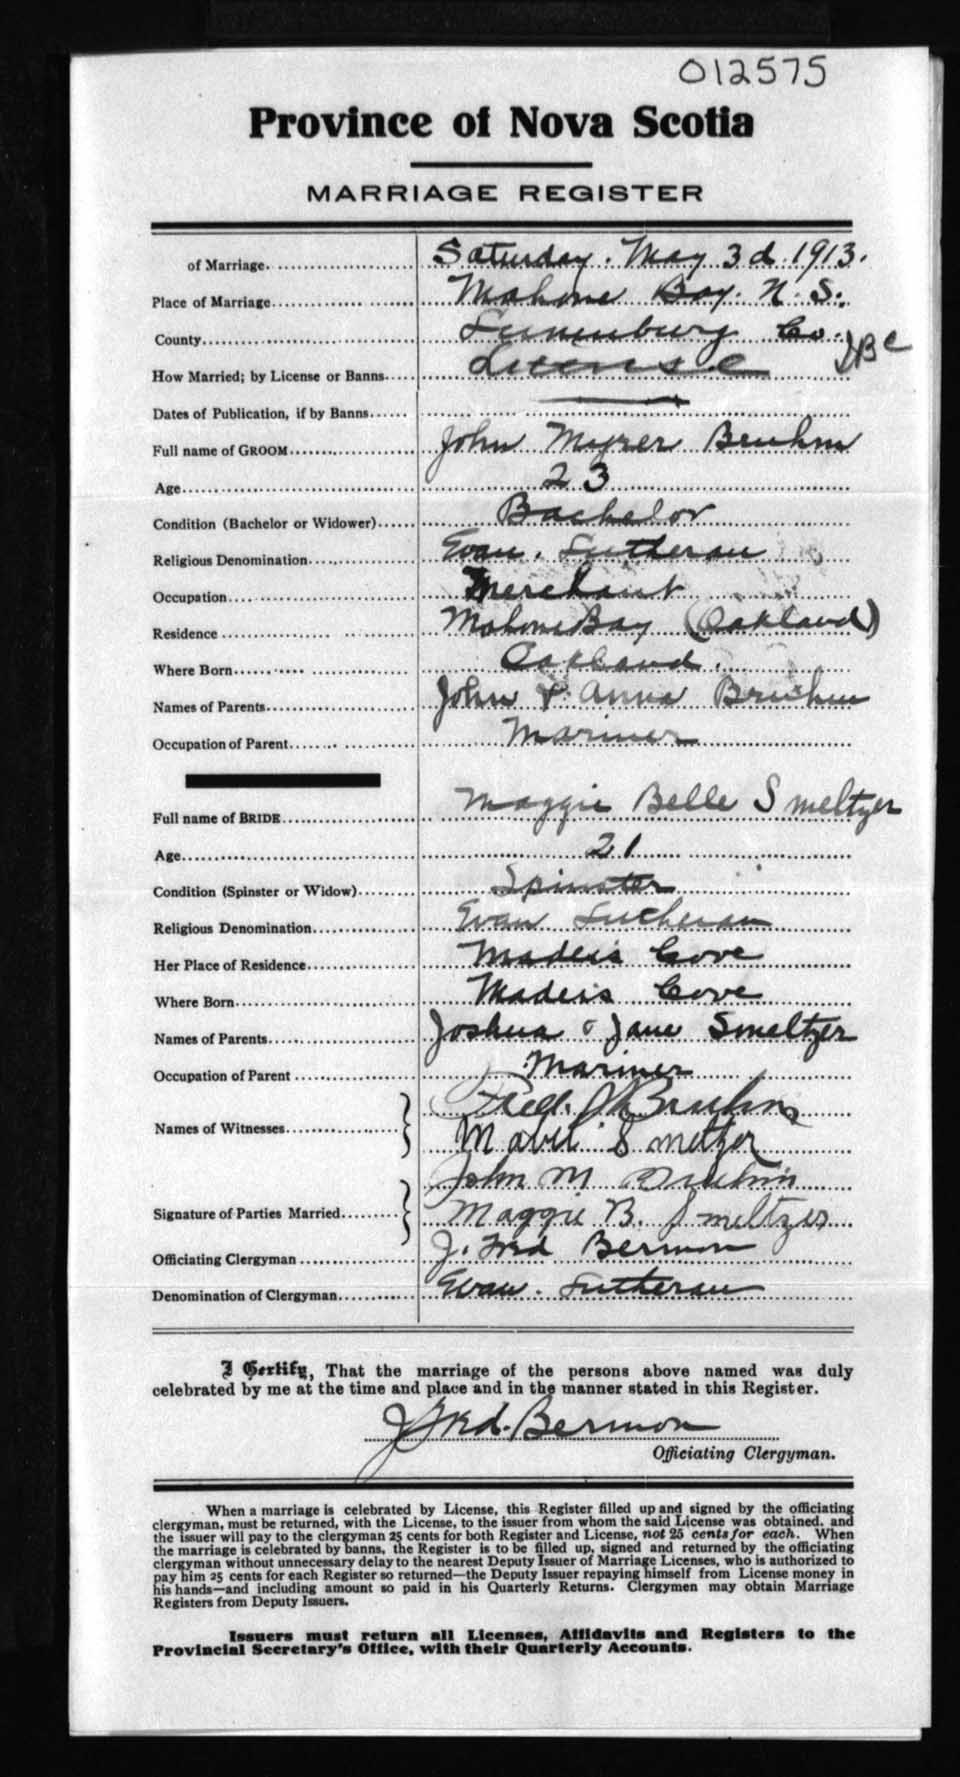 012575
Province of Nova Scotia
MARRIAGE REGISTER
of Marriage Saturday. May 3d. 1913.
Place of Marriage Mahone Bay. N. S.
County Lunenburg Co.
How Married; by License or Banns License
Dates of Publication, if by Banns
Full name of GROOM John Myrer Bruhm
Age 23
Condition (Bachelor or Widower) Bachelor
Religious Denomination Evan. Lutheran
Occupation Merchant
Residence Mahone Bay (Oakland)
Where Born Oakland.
Names of Parents John & Anna Bruhm
Occupation of Parent Mariner
Full name of BRIDE Maggie Belle Smeltzer
Age 21
Condition (Spinster or Widow) Spinster
Religious Denomination Evan Lutheran
Her Place of Residence Maders Cove
Where Born Maders Cove
Names of Parents Joshua & Jane Smeltzer
Occupation of Parent Mariner
Names of Witnesses Fred. Bruhm
Mabel Smeltzer
John M Bruhm
Signature of Parties Married Maggie B. Smeltzer
Officiating Clergyman J. Fred Bermon
Denomination of Clergyman Evan. Lutheran
I Certify, That the marriage of the persons above named was duly
celebrated by me at the time and place and in the manner stated in this Register.
J Fred. Bermon
Officiating Clergyman.
When a marriage is celebrated by License, this Register filled up and signed by the officiating
clergyman, must be returned, with the License, to the issuer from whom the said License was obtained. and
the issuer will pay to the clergyman 25 cents for both Register and License, not 25 cents for each. When
the marriage is celebrated by banns, the Register is to be filled up, signed and returned by the officiating
clergyman without unnecessary delay to the nearest Deputy Issuer of Marriage Licenses, who is authorized to
pay him 25 cents for each Register so returned—the Deputy Issuer repaying himself from License money in
his hands—and including amount so paid in his Quarterly Returns. Clergymen may obtain Marriage
Registers from Deputy Issuers.
Issuers must return all Licenses, Affidavits and Registers to the
Provincial Secretary's Office, with their Quarterly Accounts.